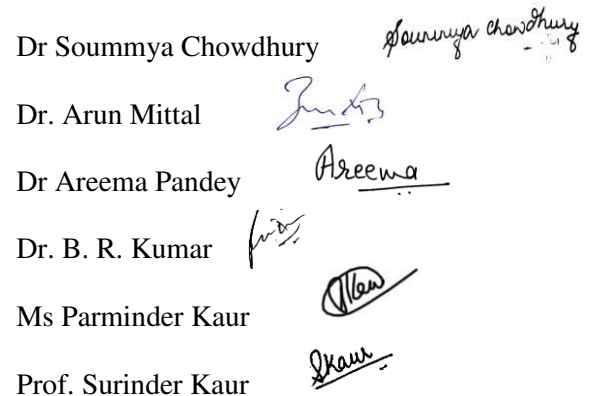 Dr Soummya Chowdhury Soummya Chowdhury
Dr. Arun Mittal
Dr Areema Pandey Areema
Dr. B. R. Kumar
Ms Parminder Kaur
Prof. Surinder Kaur SKaur